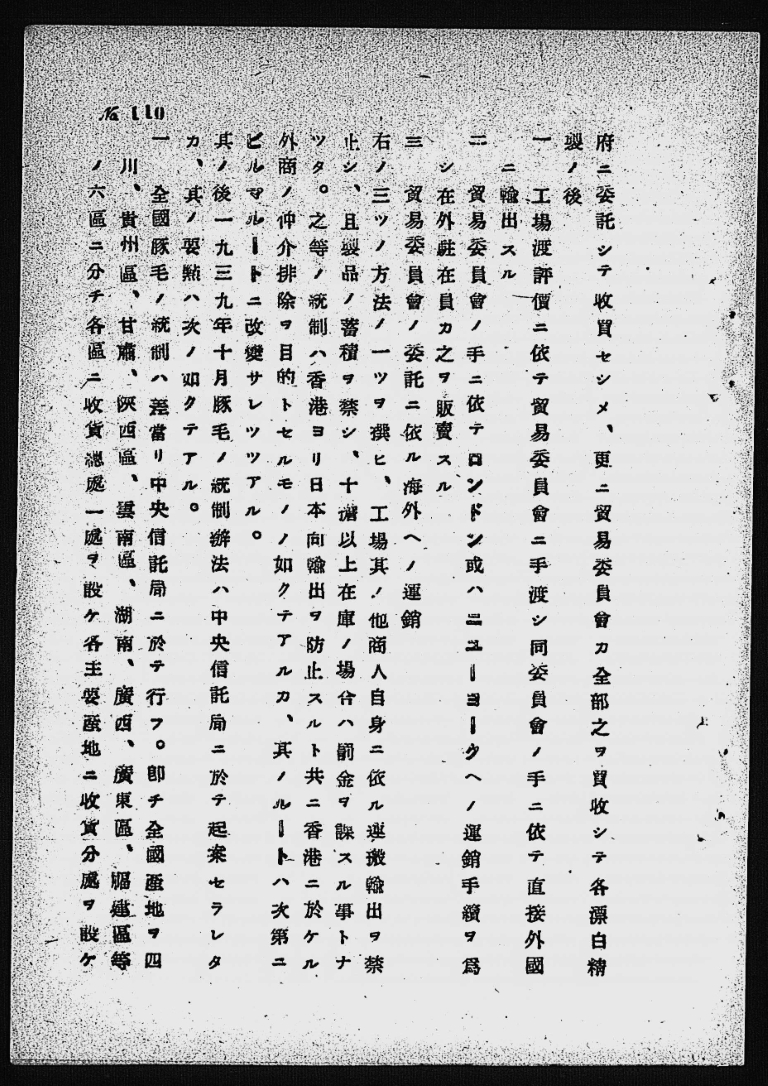 No. 110
府ニ委託シテ收買セシメ、更ニ貿易委員會カ全部之ヲ買收シテ各漂白精
製ノ後
一　工場渡評價ニ依テ貿易委員會ニ手渡シ同委員會ノ手ニ依テ直接外國
ニ輸出スル
二　貿易委員會ノ手ニ依テロンドン或ハニユーヨークヘノ運銷手續ヲ爲
シ在外駐在員カ之ヲ販賣スル
三　貿易委員會ノ委託ニ依ル海外ヘノ運銷
右ノ三ツノ方法ノ一ツヲ撰ヒ、工場其ノ他商人自身ニ依ル運搬輸出ヲ禁
止シ、且製品ノ蓄積ヲ禁シ、十擔以上在庫ノ場合ハ罰金ヲ課スル事トナ
ツタ。之等ノ統制ハ香港ヨリ日本向輸出ヲ防止スルト共ニ香港ニ於ケル
外商ノ仲介排除ヲ目的トセルモノノ如クテアルカ、其ノルートハ次第ニ
ビルマルートニ改變サレツツアル。
其ノ後一九三九年十月豚毛ノ統制辦法ハ中央信託局ニ於テ起案セラレタ
カ、其ノ要點ハ次ノ如クテアル。
一　全國豚毛ノ統制ハ差當リ中央信託局ニ於テ行フ。卽チ全國産地ヲ四
川、貴州區、甘肅、陝西區、雲南區、湖南、廣西、廣東區、福建區等
ノ六區ニ分チ各區ニ收貨總處一處ヲ設ケ各主要産地ニ收貨分處ヲ設ケ